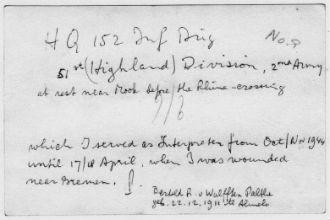 HQ 152 Inf Brig
No. 9
51st (Highland) Division, 2nd Army
at rest near Mook before the Rhine-crossing
which I served as Interpreter from Oct/Nov 1944
until 17/18 April, when I was wounded
near Bremen.
Berthold R. v Wulfften Palthe
geb. 22.12.1911 te Almelo